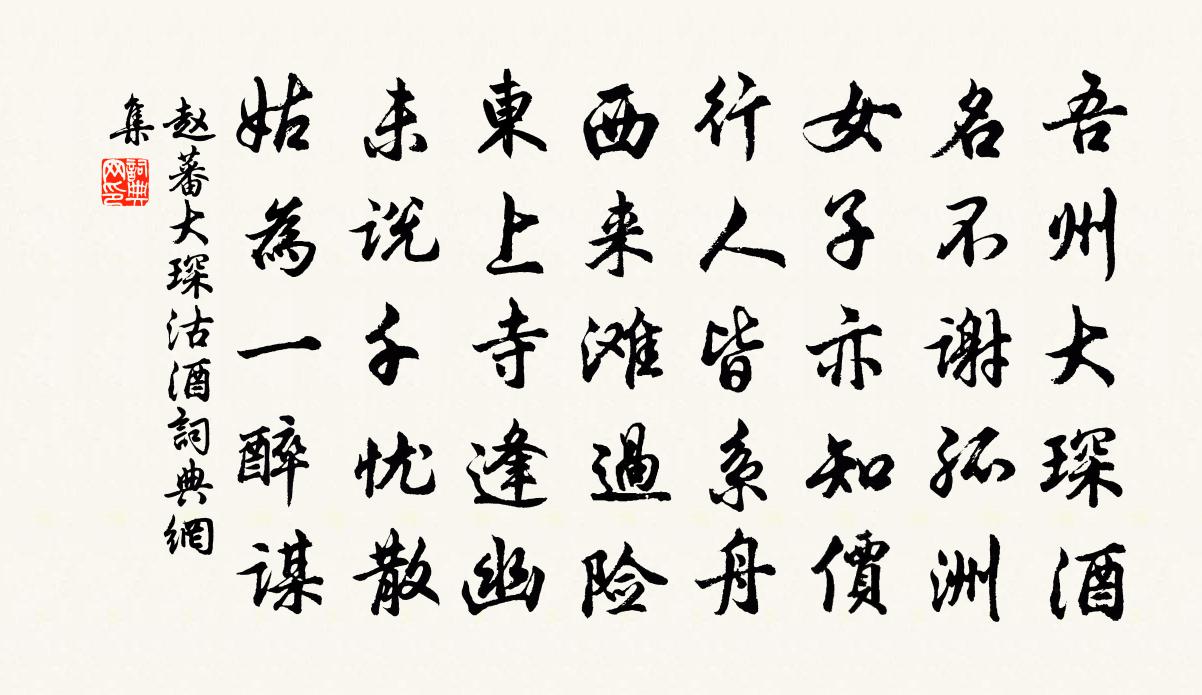 吾州大琛酒
名不谢孤洲
女子亦知價
行人皆系舟
西来滩過险
東上寺逢幽
未说千忧散
姑為一醉谋
赵蕃大琛沽酒詞典網
集
詞典
网印